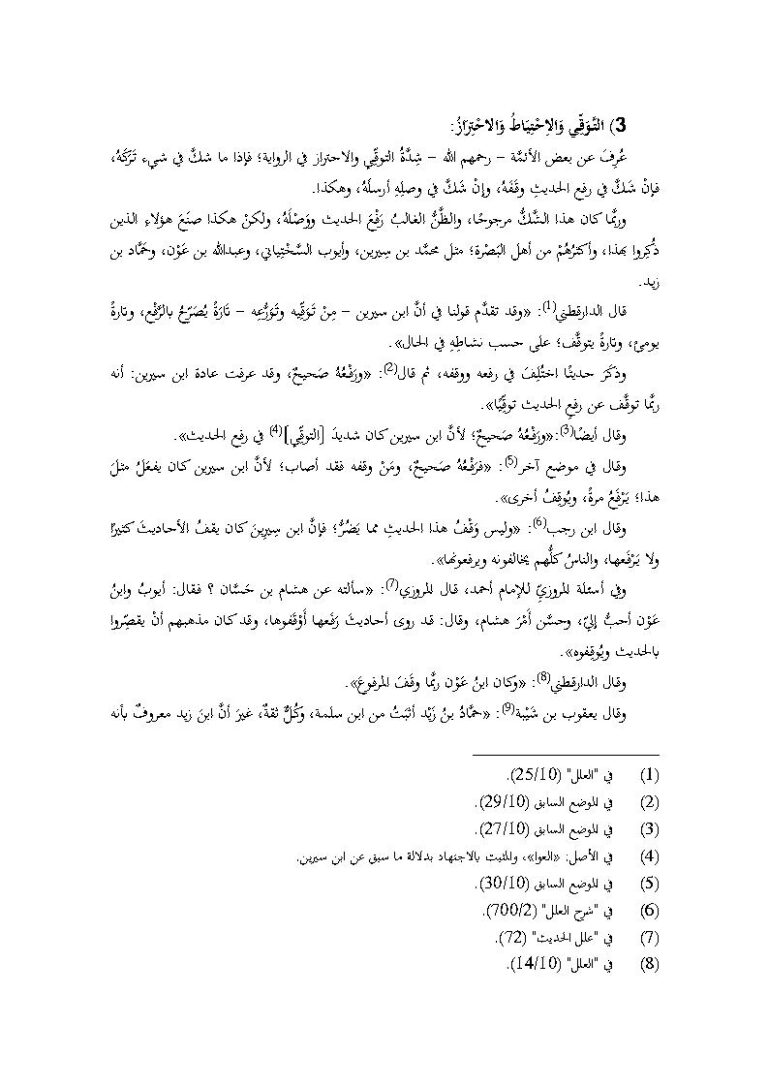 3) التَّوَقِّي وَالِاحْتِيَاطُ وَالِاحْتِرَازُ:
عُرِفَ عن بعض الأئمَّة – رحمهم الله – شِدَّةُ التوقِّي والاحتراز في الرواية؛ فإذا ما شكَّ في شيء تَرَكَهُ،
فإنْ شَكَّ في رفعِ الحديثِ وقَفَهُ، وإنْ شَكَّ في وصلِهِ أرسلَهُ، وهكذا.
وربَّما كان هذا الشكُّ مرجوحًا، والظَّنُّ الغالبُ رَفْعَ الحديث ووَصْلَهُ، ولكنْ هكذا صنَعَ هؤلاءِ الذين
ذُكِروا بهذا، وأكثرُهُمْ من أهل البَصْرة؛ مثل محمَّد بن سِيرين، وأيوب السَّخْتِياني، وعبدالله بن عَوْن، وحمَّاد بن
زيد.
قال الدارقطني(1): «وقد تقدَّم قولنا في أنَّ ابن سيرين – مِنْ تَوَقِّيه وتَوَرُّعِه – تَارَةً يُصَرِّحُ بالرَّفْع، وتارةً
يومئ، وتارةً يتوقَّف؛ على حسب نشاطِهِ في الحال».
وذكَرَ حديثًا اختُلِفَ في رفعه ووقفه، ثم قال(2): «ورَفْعُهُ صَحيحٌ، وقد عرفت عادة ابن سيرين: أنه
ربَّما توقَّف عن رفعِ الحديث توقِّيًا».
وقال أيضًا(3):«ورَفْعُهُ صحيحٌ؛ لأنَّ ابن سيرين كان شديدَ [التوقِّي](4) في رفع الحديث».
وقال في موضع آخر(5): «فرَفْعُهُ صَحيحٌ، ومَنْ وقفه فقد أصاب؛ لأنَّ ابن سيرين كان يفعَلُ مثلَ
هذا؛ يَرْفَعُ مرةً، ويُوقِفُ أخرى».
وقال ابن رجب(6): «وليس وَقْفُ هذا الحديثِ مما يَضُرُّ؛ فإنَّ ابن سِيرِينَ كان يقفُ الأحاديثَ كثيرًا
ولا يَرْفَعها، والناسُ كلُّهم يخالفونه ويرفعونها».
وفي أسئلة المروزيِّ للإمام أحمد، قال المروزي(7): «سألته عن هشام بن حَسَّان ؟ فقال: أيوبُ وابنُ
عَوْن أحبُّ إليَّ، وحسَّن أَمْرَ هشام، وقال: قد روى أحاديثَ رَفَعها أَوْقَفوها، وقد كان مذهبهم أنْ يقصِّروا
بالحديث ويُوقِفوه».
وقال الدارقطني(8): «وكان ابنُ عَوْن ربَّما وقَفَ المرفوعَ».
وقال يعقوب بن شَيْبة(9): «حمَّادُ بنُ زَيْد أثبَتُ من ابن سلَمة، وكُلٌّ ثقةٌ، غيرَ أنَّ ابنَ زيد معروفٌ بأنه
(1) في "العلل" (25/10).
(2) في الموضع السابق (29/10).
(3) في الموضع السابق (27/10).
(4) في الأصل: «العوا»، والمثبت بالاجتهاد بدلالة ما سبق عن ابن سيرين.
(5) في الموضع السابق (30/10).
(6) في "شرح العلل" (700/2).
(7) في "علل الحديث" (72).
(8) في "العلل" (14/10).